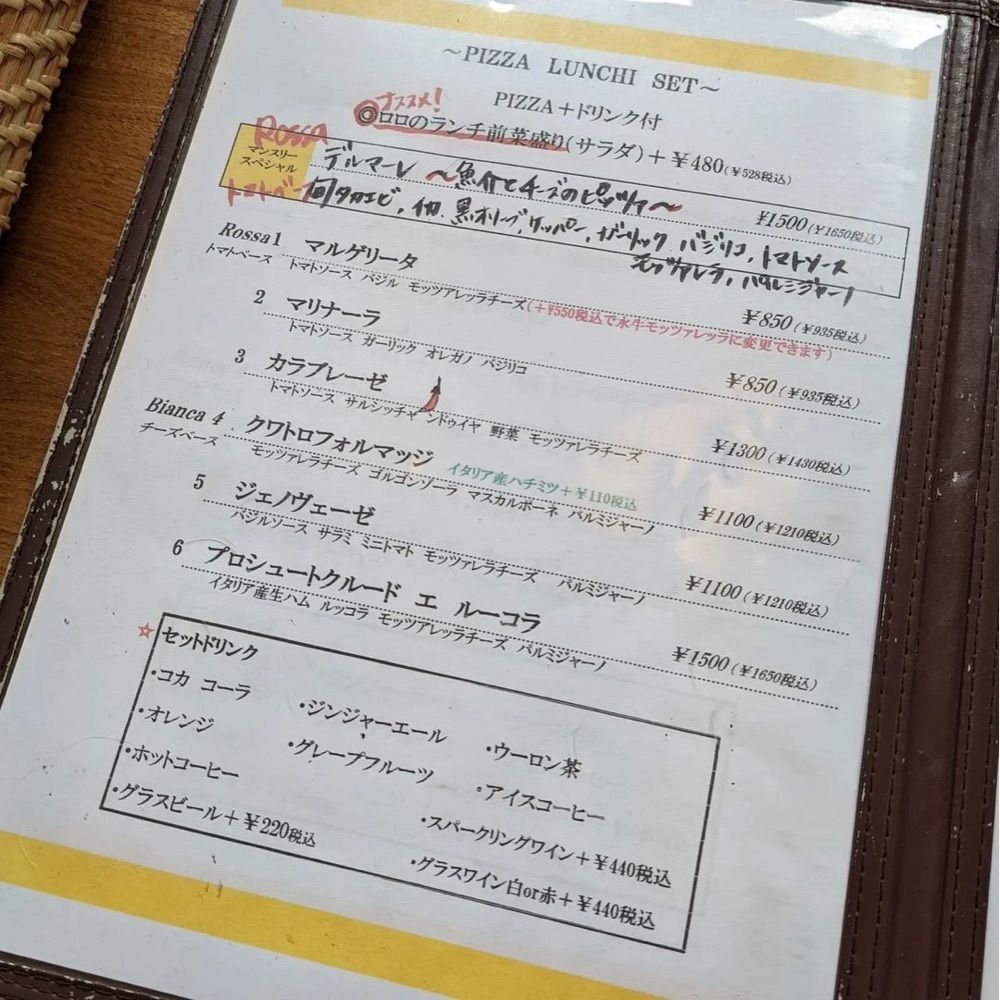 ～PIZZA LUNCHI SET～
PIZZA＋ドリンク付
オススメ！
◎ロロのランチ前菜盛り(サラダ)＋￥480(￥528税込)
Rossa
マンスリースペシャル
デルマーレ ～魚介とチーズのピッツァ～
￥1500(￥1650税込)
トマトベース
タカエビ，イカ，黒オリーブ，ケッパー，ガーリック バジリコ，トマトソース
モッツァレラ，パルミジャーノ
Rossa1 マルゲリータ
￥850(￥935税込)
トマトベース トマトソース バジル モッツアレッラチーズ(＋￥550税込で水牛モッツァレッラに変更できます)
2 マリナーラ
￥850(￥935税込)
トマトソース ガーリック オレガノ バジリコ
3 カラブレーゼ
￥1300(￥1430税込)
トマトソース サルシッチャ ンドゥイヤ 野菜 モッツァレラチーズ
Bianca 4 クワトロフォルマッジ イタリア産ハチミツ＋￥110税込
￥1100(￥1210税込)
チーズベース モッツァレラチーズ ゴルゴンゾーラ マスカルポーネ パルミジャーノ
5 ジェノヴェーゼ
￥1100(￥1210税込)
バジルソース サラミ ミニトマト モッツァレラチーズ パルミジャーノ
6 プロシュートクルード エ ルーコラ
￥1500(￥1650税込)
イタリア産生ハム ルッコラ モッツアレッラチーズ パルミジャーノ
☆セットドリンク
・コカ コーラ ・ジンジャーエール ・ウーロン茶
・オレンジ ・グレープフルーツ ・アイスコーヒー
・ホットコーヒー ・スパークリングワイン＋￥440税込
・グラスビール＋￥220税込 ・グラスワイン白or赤＋￥440税込